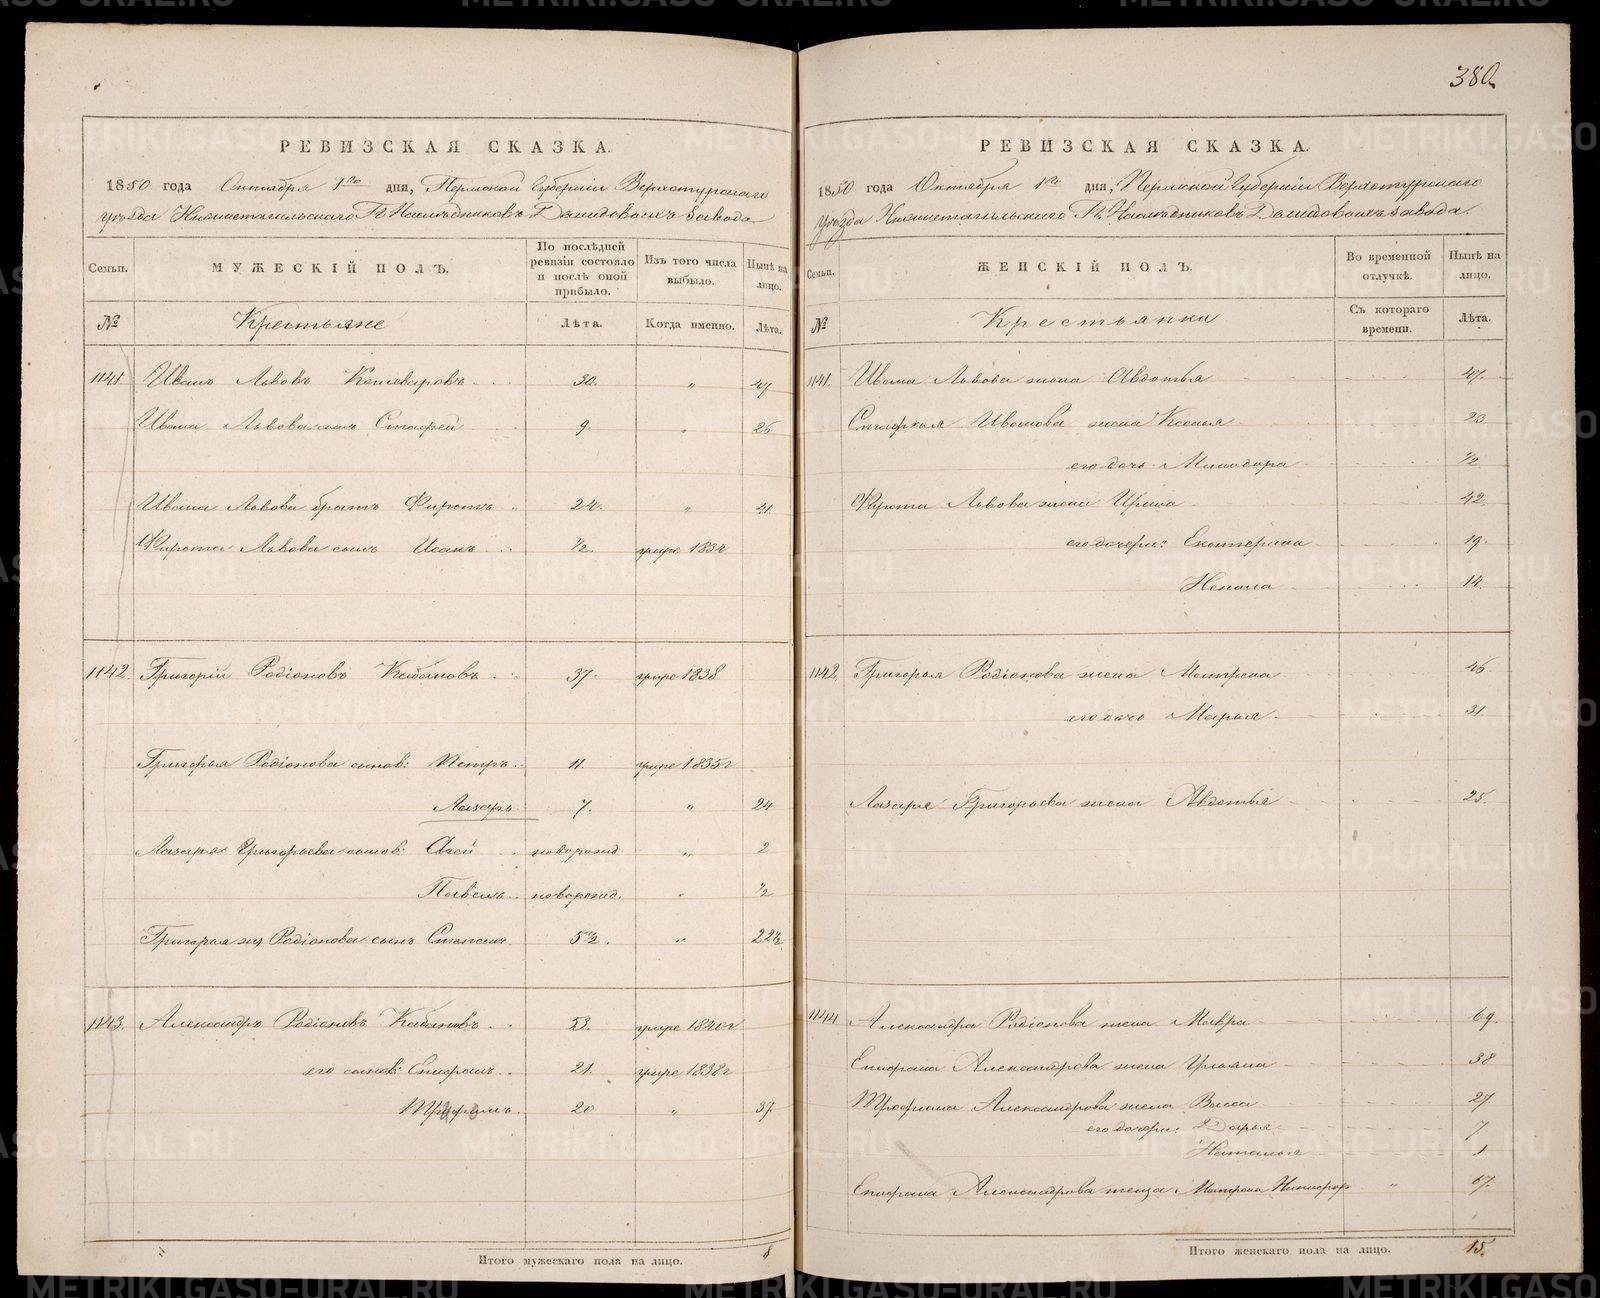 380.
РЕВИЗСКАЯ СКАЗКА.
1850 года Октября 1го дня, Пермской Губерніи Верхотурскаго
уѣзда Нижнетагильскаго Г.г. Наслѣдниковъ Демидовыхъ завода
Семьи.
МУЖЕСКІЙ ПОЛЪ.
По послѣдней ревизіи состояло и послѣ оной прибыло.
Изъ того числа выбыло.
Нынѣ на лицо.
№ Крестьяне Лѣта. Когда именно. Лѣта.
1141. Иванъ Львовъ Кашеваровъ 30. " 47
Ивана Львова сынъ Стафей 9. " 26
Ивана Львова братъ Фирстъ 24. " 41.
Фирста Львова сынъ Исакъ ½. умре 1834
1142. Григорій Родіоновъ Кабановъ 37. умре 1838
Григорья Родіонова сынов: Петръ 11. умре 1835г
Лазарь 7. " 24
Лазаря Григорьева сынов: Агей новорожд. " 2
Павелъ новорожд. " ½
Григорья Родіонова сынъ 5½. " 22½
1143. Александръ Родіоновъ Кабановъ 53. умре 1840г
его сынов: Епифанъ 21. умре 1838г
Трофимъ 20 " 37.
Итого мужескаго пола на лицо. 8
РЕВИЗСКАЯ СКАЗКА.
1850 года Октября 1го дня, Пермской Губерніи Верхотурскаго
Уѣзда Нижнетагильскаго Г.г. Наслѣдниковъ Демидовыхъ завода.
Семьи.
ЖЕНСКІЙ ПОЛЪ.
Во временной отлучкѣ.
Нынѣ на лицо.
№ Крестьянки Съ котораго времени. Лѣта.
1141. Ивана Львова жена Авдотья 47.
Стафея Иванова жена Ксенья 23.
его дочь Минодора ½
Фирста Львова жена Ирина 42.
его дочери: Екатерина 19.
Ненила 14.
1142. Григорья Родіонова жена Матрена 46
его дочь Марья 31
Лазаря Григорьева жена Авдотья 25.
1144 Александра Родіонова жена Мавра 69.
Епифана Александрова жена Ульяна 38
Трофима Александрова жена Васса 27
его дочери: Дарья 7
Наталья 1
Епифана Александрова теща Матрена Никифор. " 67.
Итого женскаго пола на лицо. 15.
METRIKI.GASO-URAL.RU